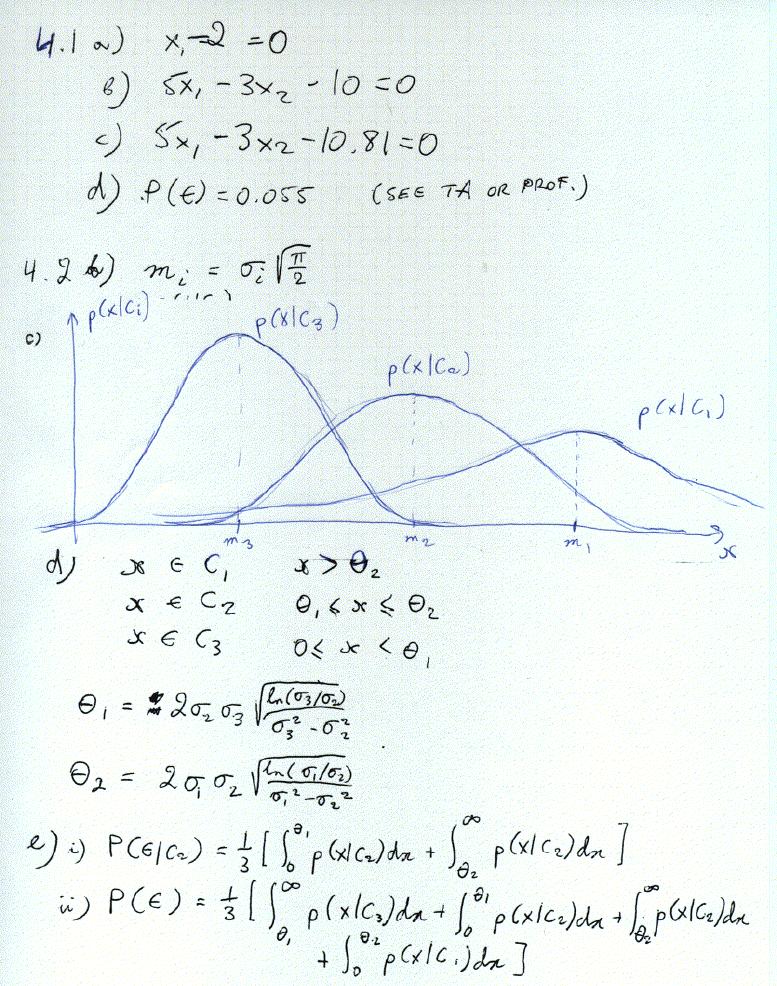 4.1 a) x₁-2 =0
b) 5x₁ - 3x₂ - 10 = 0
c) 5x₁ - 3x₂ - 10.81 = 0
d) P(ϵ) = 0.055 (SEE TA OR PROF.)
4.2 b) mᵢ = σᵢ √(π/2)
c) p(x|Cᵢ) p(x|C₃) p(x|C₂) p(x|C₁)
m₃ m₂ m₁ x
d) x ∈ C₁ x > θ₂
x ∈ C₂ θ₁ ≤ x ≤ θ₂
x ∈ C₃ 0 ≤ x < θ₁
θ₁ = 2σ₂ σ₃ √(ln(σ₃/σ₂)/(σ₃² - σ₂²))
θ₂ = 2σ₁ σ₂ √(ln(σ₁/σ₂)/(σ₁² - σ₂²))
e) i) P(ϵ|C₂) = 1/3 [ ∫₀^θ₁ p(x|C₂)dx + ∫_θ₂^∞ p(x|C₂)dx ]
ii) P(ϵ) = 1/3 [ ∫_θ₁^∞ p(x|C₃)dx + ∫₀^θ₁ p(x|C₂)dx + ∫_θ₂^∞ p(x|C₂)dx
+ ∫₀^θ₂ p(x|C₁)dx ]